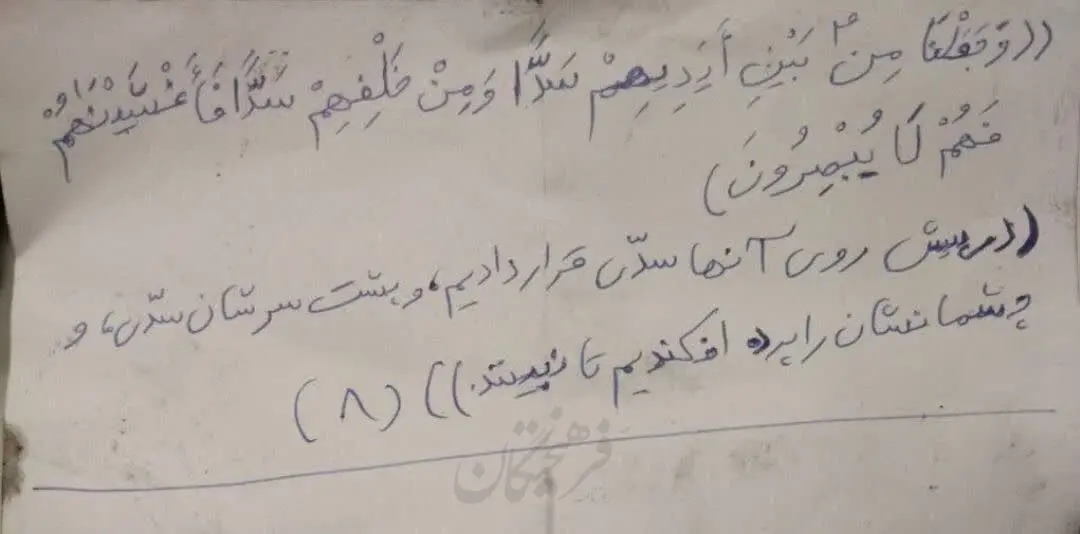 ((وَجَعَلْنَا مِنْ بَيْنِ أَيْدِيهِمْ سَدًّا وَمِنْ خَلْفِهِمْ سَدًّا فَأَغْشَيْنَاهُمْ
فَهُمْ لَا يُبْصِرُونَ)
((در پیش روی آنها سدّی قرار دادیم، و پشت سرشان سدّی، و
چشمانشان را پرده افکندیم تا نبینند.)) (۸)
فرهیختگان